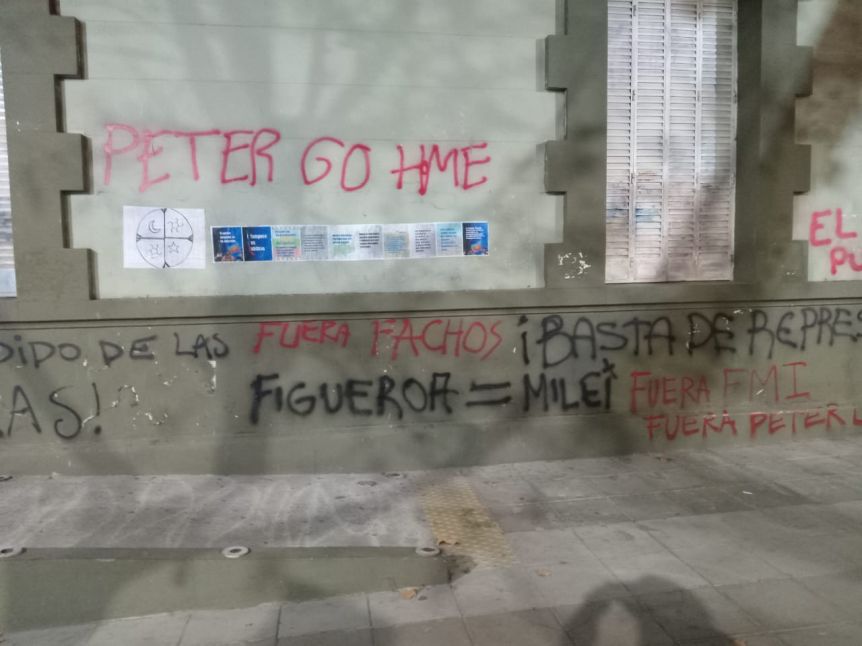 PETER GO HME
EL
PU
DIDO DE LAS FUERA FACHOS ¡BASTA DE REPRES
AS! FIGUEROA = MILEI FUERA FMI
FUERA PETER L